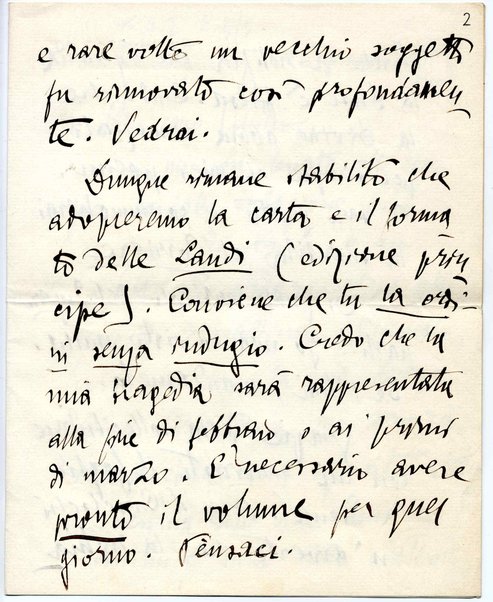 2
e rare volte un vecchio soggetto
fu rinnovato così profondamen
te. Vedrai.
Dunque rimane stabilito che
adopreremo la carta e il forma
to delle Laudi (edizione prin
cipe). Conviene che tu la ordi-
ni senza indugio. Credo che la
mia tragedia sarà rappresentata
alla fine di febbraio o ai primi
di marzo. È necessario avere
pronto il volume per quel
giorno. Pensaci.